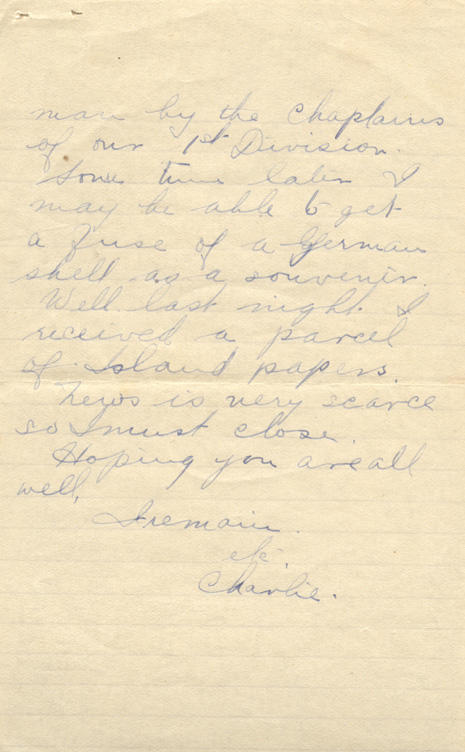 man by the Chaplains
of our 1st Division.
Some time later I
may be able to get
a fuse of a German
shell as a souvenir.
Well last night I
received a parcel
of Island papers.
News is very scarce
so I must close.
Hoping you are all
well,
I remain.
etc.
Charlie.